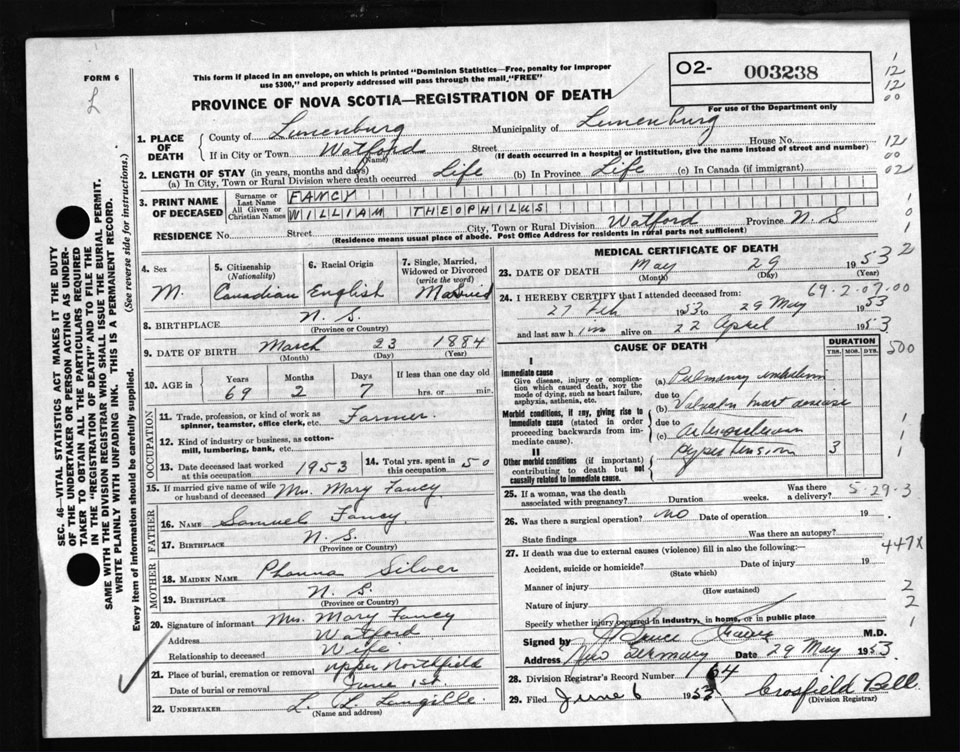 FORM 6
This form if placed in an envelope, on which is printed "Dominion Statistics—Free, penalty for improper
use $300," and properly addressed will pass through the mail, "FREE"
PROVINCE OF NOVA SCOTIA—REGISTRATION OF DEATH
O2- 003238
For use of the Department only
1
12
12
00
1. PLACE OF DEATH
County of Lunenburg Municipality of Lunenburg
If in City or Town Watford Street House No.
(Name) (If death occurred in a hospital or institution, give the name instead of street and number)
12
00
02
2. LENGTH OF STAY (in years, months and days)
(a) In City, Town or Rural Division where death occurred Life (b) In Province Life (c) In Canada (if immigrant)
3. PRINT NAME OF DECEASED
Surname or Last Name FANCY
All Given or Christian Names WILLIAM THEOPHILUS
RESIDENCE No. Street City, Town or Rural Division Watford Province N.S
(Residence means usual place of abode. Post Office Address for residents in rural parts not sufficient)
4. Sex
M.
5. Citizenship (Nationality)
Canadian
6. Racial Origin
English
7. Single, Married, Widowed or Divorced (write the word)
Married
8. BIRTHPLACE N.S.
(Province or Country)
9. DATE OF BIRTH March 23 1884
(Month) (Day) (Year)
10. AGE in Years Months Days If less than one day old
69 2 7 hrs. or min.
OCCUPATION
11. Trade, profession, or kind of work as
spinner, teamster, office clerk, etc. Farmer.
12. Kind of industry or business, as cotton-
mill, lumbering, bank, etc.
13. Date deceased last worked at this occupation 1953
14. Total yrs. spent in this occupation 50
15. If married give name of wife
or husband of deceased Mrs. Mary Fancy
FATHER
16. NAME Samuel Fancy
17. BIRTHPLACE N.S.
(Province or Country)
MOTHER
18. MAIDEN NAME Silver
19. BIRTHPLACE N.S.
(Province or Country)
20. Signature of informant Mrs. Mary Fancy
Address Watford
Relationship to deceased Wife
21. Place of burial, cremation or removal Upper Northfield
Date of burial or removal June 1st.
22. UNDERTAKER L. L. Langille
(Name and address)
MEDICAL CERTIFICATE OF DEATH
23. DATE OF DEATH May 29 1953
(Month) (Day) (Year)
69-2-07.00
24. I HEREBY CERTIFY that I attended deceased from:
27 Feb 1953 to 29 May 1953
and last saw him alive on 22 April 1953
CAUSE OF DEATH
DURATION
YRS. MOS. DYS.
500
I
Immediate cause
Give disease, injury or complica-
tion which caused death, NOT the
mode of dying, such as heart failure,
asphyxia, asthenia, etc.
(a) Pulmonary embolism
due to
(b) Valvular heart disease
Morbid conditions, if any, giving rise to
immediate cause (stated in order
proceeding backwards from im-
mediate cause).
due to
(c)
II
Other morbid conditions (if important)
contributing to death but not
causally related to immediate cause.
Hypertension 3
25. If a woman, was the death
associated with pregnancy? Duration weeks. Was there a delivery?
5-29-3
26. Was there a surgical operation? No Date of operation 19
State findings Was there an autopsy?
27. If death was due to external causes (violence) fill in also the following:—
447X
Accident, suicide or homicide? Date of injury 19
(State which)
Manner of injury
(How sustained)
Nature of injury
Specify whether injury occurred in industry, in home, or in public place
Signed by J Bruce M.D.
Address New Germany Date 29 May 1953
28. Division Registrar's Record Number 164
29. Filed June 6 1953 Crosfield Bell
(Division Registrar)
SEC. 46—VITAL STATISTICS ACT MAKES IT THE DUTY
OF THE UNDERTAKER OR PERSON ACTING AS UNDER-
TAKER TO OBTAIN ALL THE PARTICULARS REQUIRED
IN THE "REGISTRATION OF DEATH" AND TO FILE THE
SAME WITH THE DIVISION REGISTRAR WHO SHALL ISSUE THE BURIAL PERMIT.
WRITE PLAINLY WITH UNFADING INK. THIS IS A PERMANENT RECORD.
Every item of information should be carefully supplied. (See reverse side for instructions.)